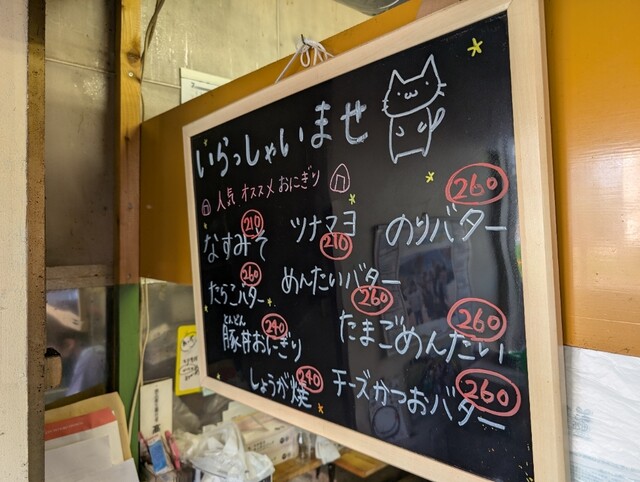 いらっしゃいませ
人気 オススメ おにぎり
なすみそ 210
ツナマヨ 210
のりバター 260
たらこバター 260
めんたいバター 260
とんどん
豚丼おにぎり 240
たまごめんたい 260
しょうが焼 240
チーズかつおバター 260